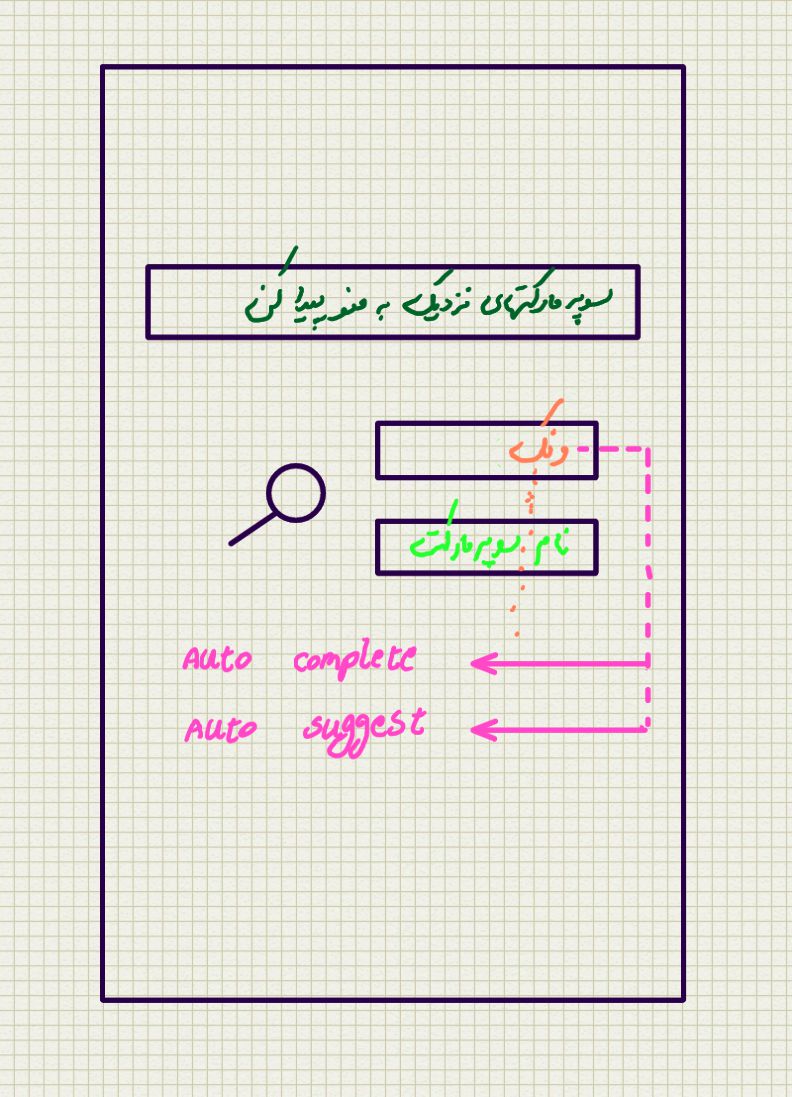 سوپرمارکتهای نزدیک به منو پیدا کن
ونک
نام سوپرمارکت
Auto complete
Auto suggest